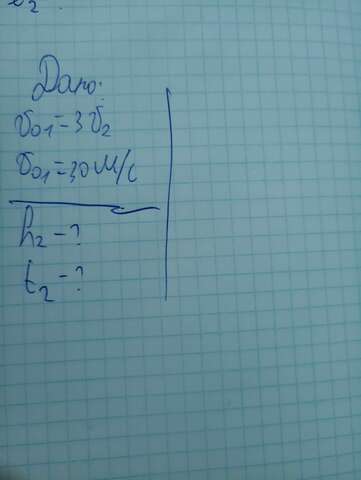 Дано:
v₀₁=3v₂
v₀₁=30м/с
h₂-?
t₂-?